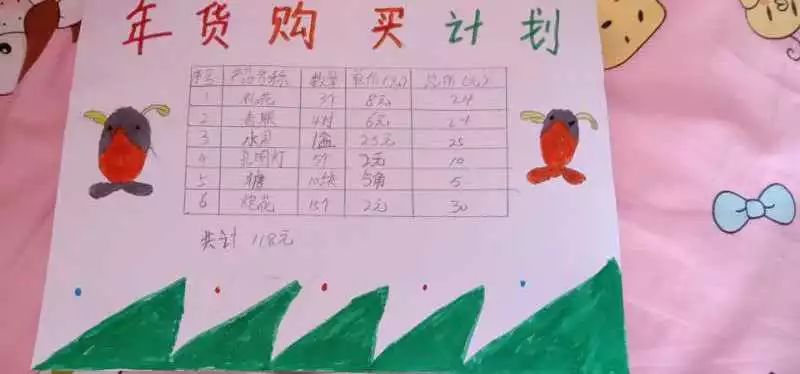 年货购买计划
序号 产品名称 数量 单价(元) 总价(元)
1 花 3个 8元 24
2 春联 4对 6元 24
3 水果 1盒 25元 25
4 孔明灯 5个 2元 10
5 糖 10块 5角 5
6 炮花 15个 2元 30
共计 118元